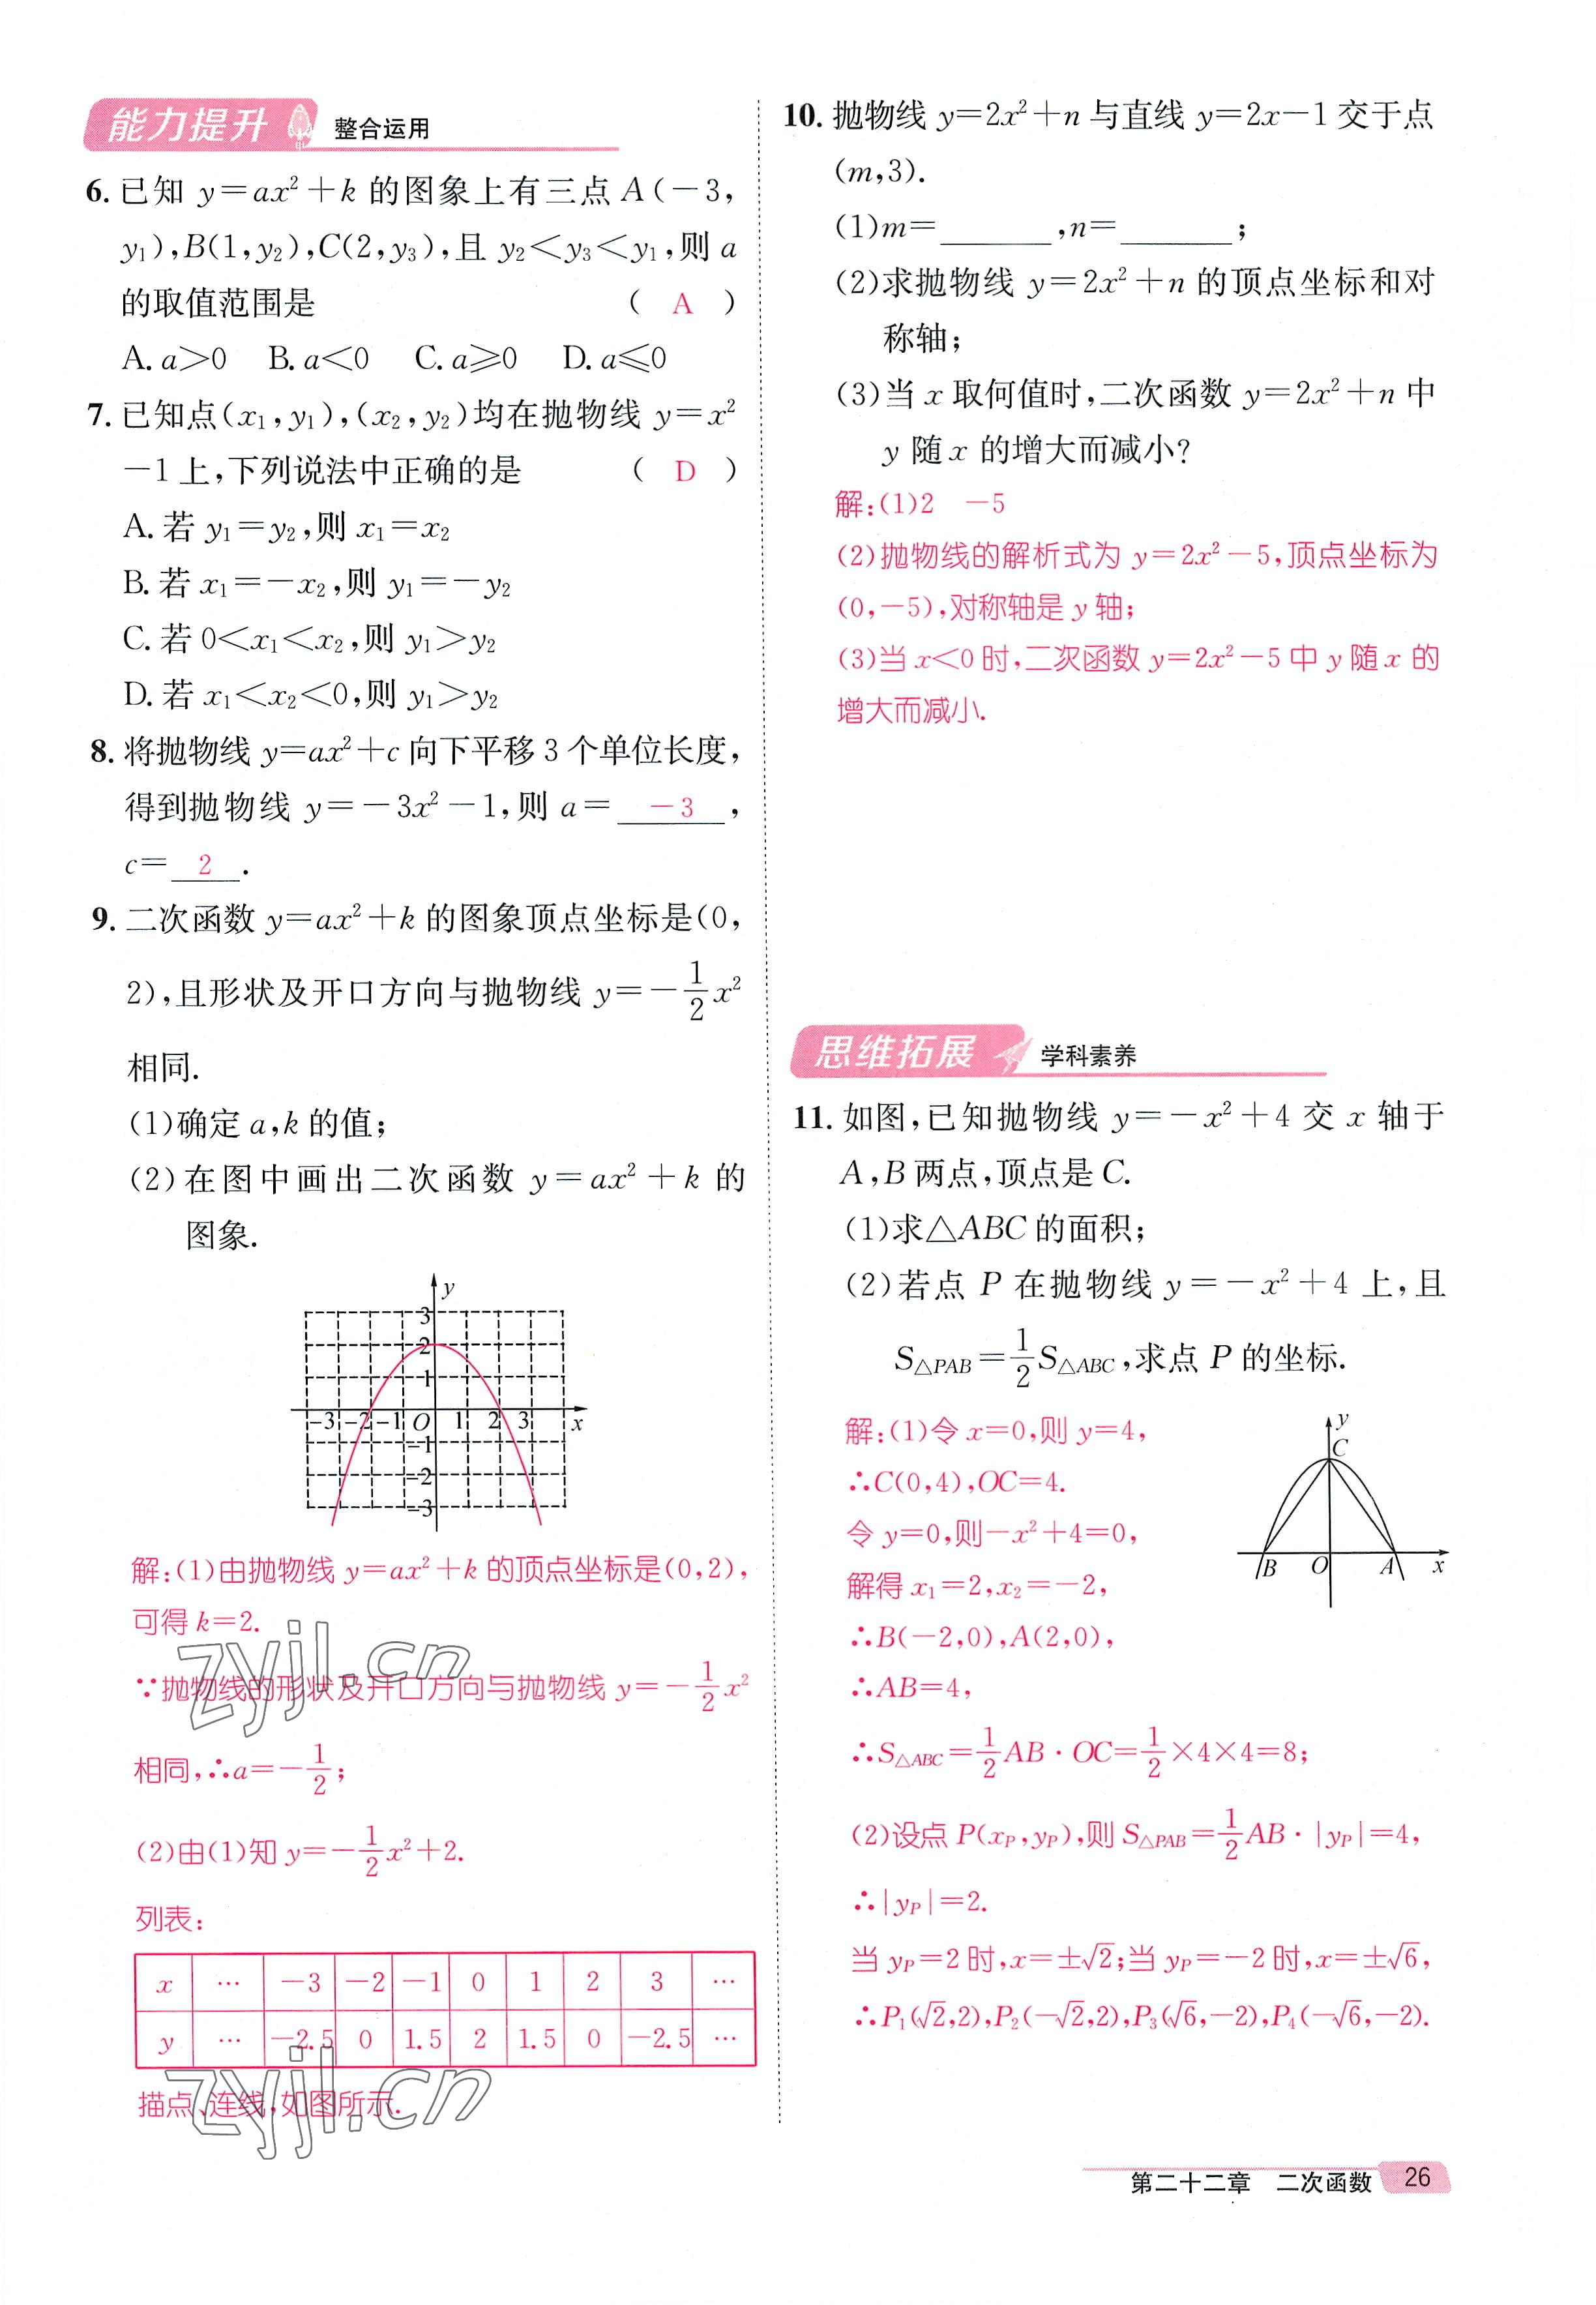 能力提升 整合运用
6. 已知 y=ax²+k 的图象上有三点 A(-3,
y₁),B(1,y₂),C(2,y₃),且 y₂<y₃<y₁,则 a
的取值范围是 ( A )
A. a>0 B. a<0 C. a≥0 D. a≤0
7. 已知点(x₁,y₁),(x₂,y₂)均在抛物线 y=x²
-1上,下列说法中正确的是 ( D )
A. 若 y₁=y₂,则 x₁=x₂
B. 若 x₁=-x₂,则 y₁=-y₂
C. 若 0<x₁<x₂,则 y₁>y₂
D. 若 x₁<x₂<0,则 y₁>y₂
8. 将抛物线 y=ax²+c 向下平移 3 个单位长度,
得到抛物线 y=-3x²-1,则 a= -3 ,
c= 2 .
9. 二次函数 y=ax²+k 的图象顶点坐标是(0,
2),且形状及开口方向与抛物线 y=-1/2 x²
相同.
(1)确定 a,k 的值;
(2)在图中画出二次函数 y=ax²+k 的
图象.
y
3
2
1
-3 -2 -1 O 1 2 3 x
-1
-2
-3
解:(1)由抛物线 y=ax²+k 的顶点坐标是(0,2),
可得 k=2.
∵抛物线的形状及开口方向与抛物线 y=-1/2 x²
相同,∴a=-1/2;
(2)由(1)知 y=-1/2 x²+2.
列表:
x … -3 -2 -1 0 1 2 3 …
y … -2.5 0 1.5 2 1.5 0 -2.5 …
描点、连线,如图所示.
zyjl.cn
zyjl.cn
10. 抛物线 y=2x²+n 与直线 y=2x-1 交于点
(m,3).
(1)m=______,n=______;
(2)求抛物线 y=2x²+n 的顶点坐标和对
称轴;
(3)当 x 取何值时,二次函数 y=2x²+n 中
y 随 x 的增大而减小?
解:(1)2 -5
(2)抛物线的解析式为 y=2x²-5,顶点坐标为
(0,-5),对称轴是 y 轴;
(3)当 x<0 时,二次函数 y=2x²-5 中 y 随 x 的
增大而减小.
思维拓展 学科素养
11. 如图,已知抛物线 y=-x²+4 交 x 轴于
A,B 两点,顶点是 C.
(1)求△ABC 的面积;
(2)若点 P 在抛物线 y=-x²+4 上,且
S△PAB=1/2 S△ABC,求点 P 的坐标.
解:(1)令 x=0,则 y=4,
∴C(0,4),OC=4.
令 y=0,则-x²+4=0,
解得 x₁=2,x₂=-2,
∴B(-2,0),A(2,0),
∴AB=4,
y
C
B O A x
∴S△ABC=1/2 AB·OC=1/2×4×4=8;
(2)设点 P(xP,yP),则 S△PAB=1/2 AB·|yP|=4,
∴|yP|=2.
当 yP=2 时,x=±√2;当 yP=-2 时,x=±√6,
∴P₁(√2,2),P₂(-√2,2),P₃(√6,-2),P₄(-√6,-2).
第二十二章 二次函数 26